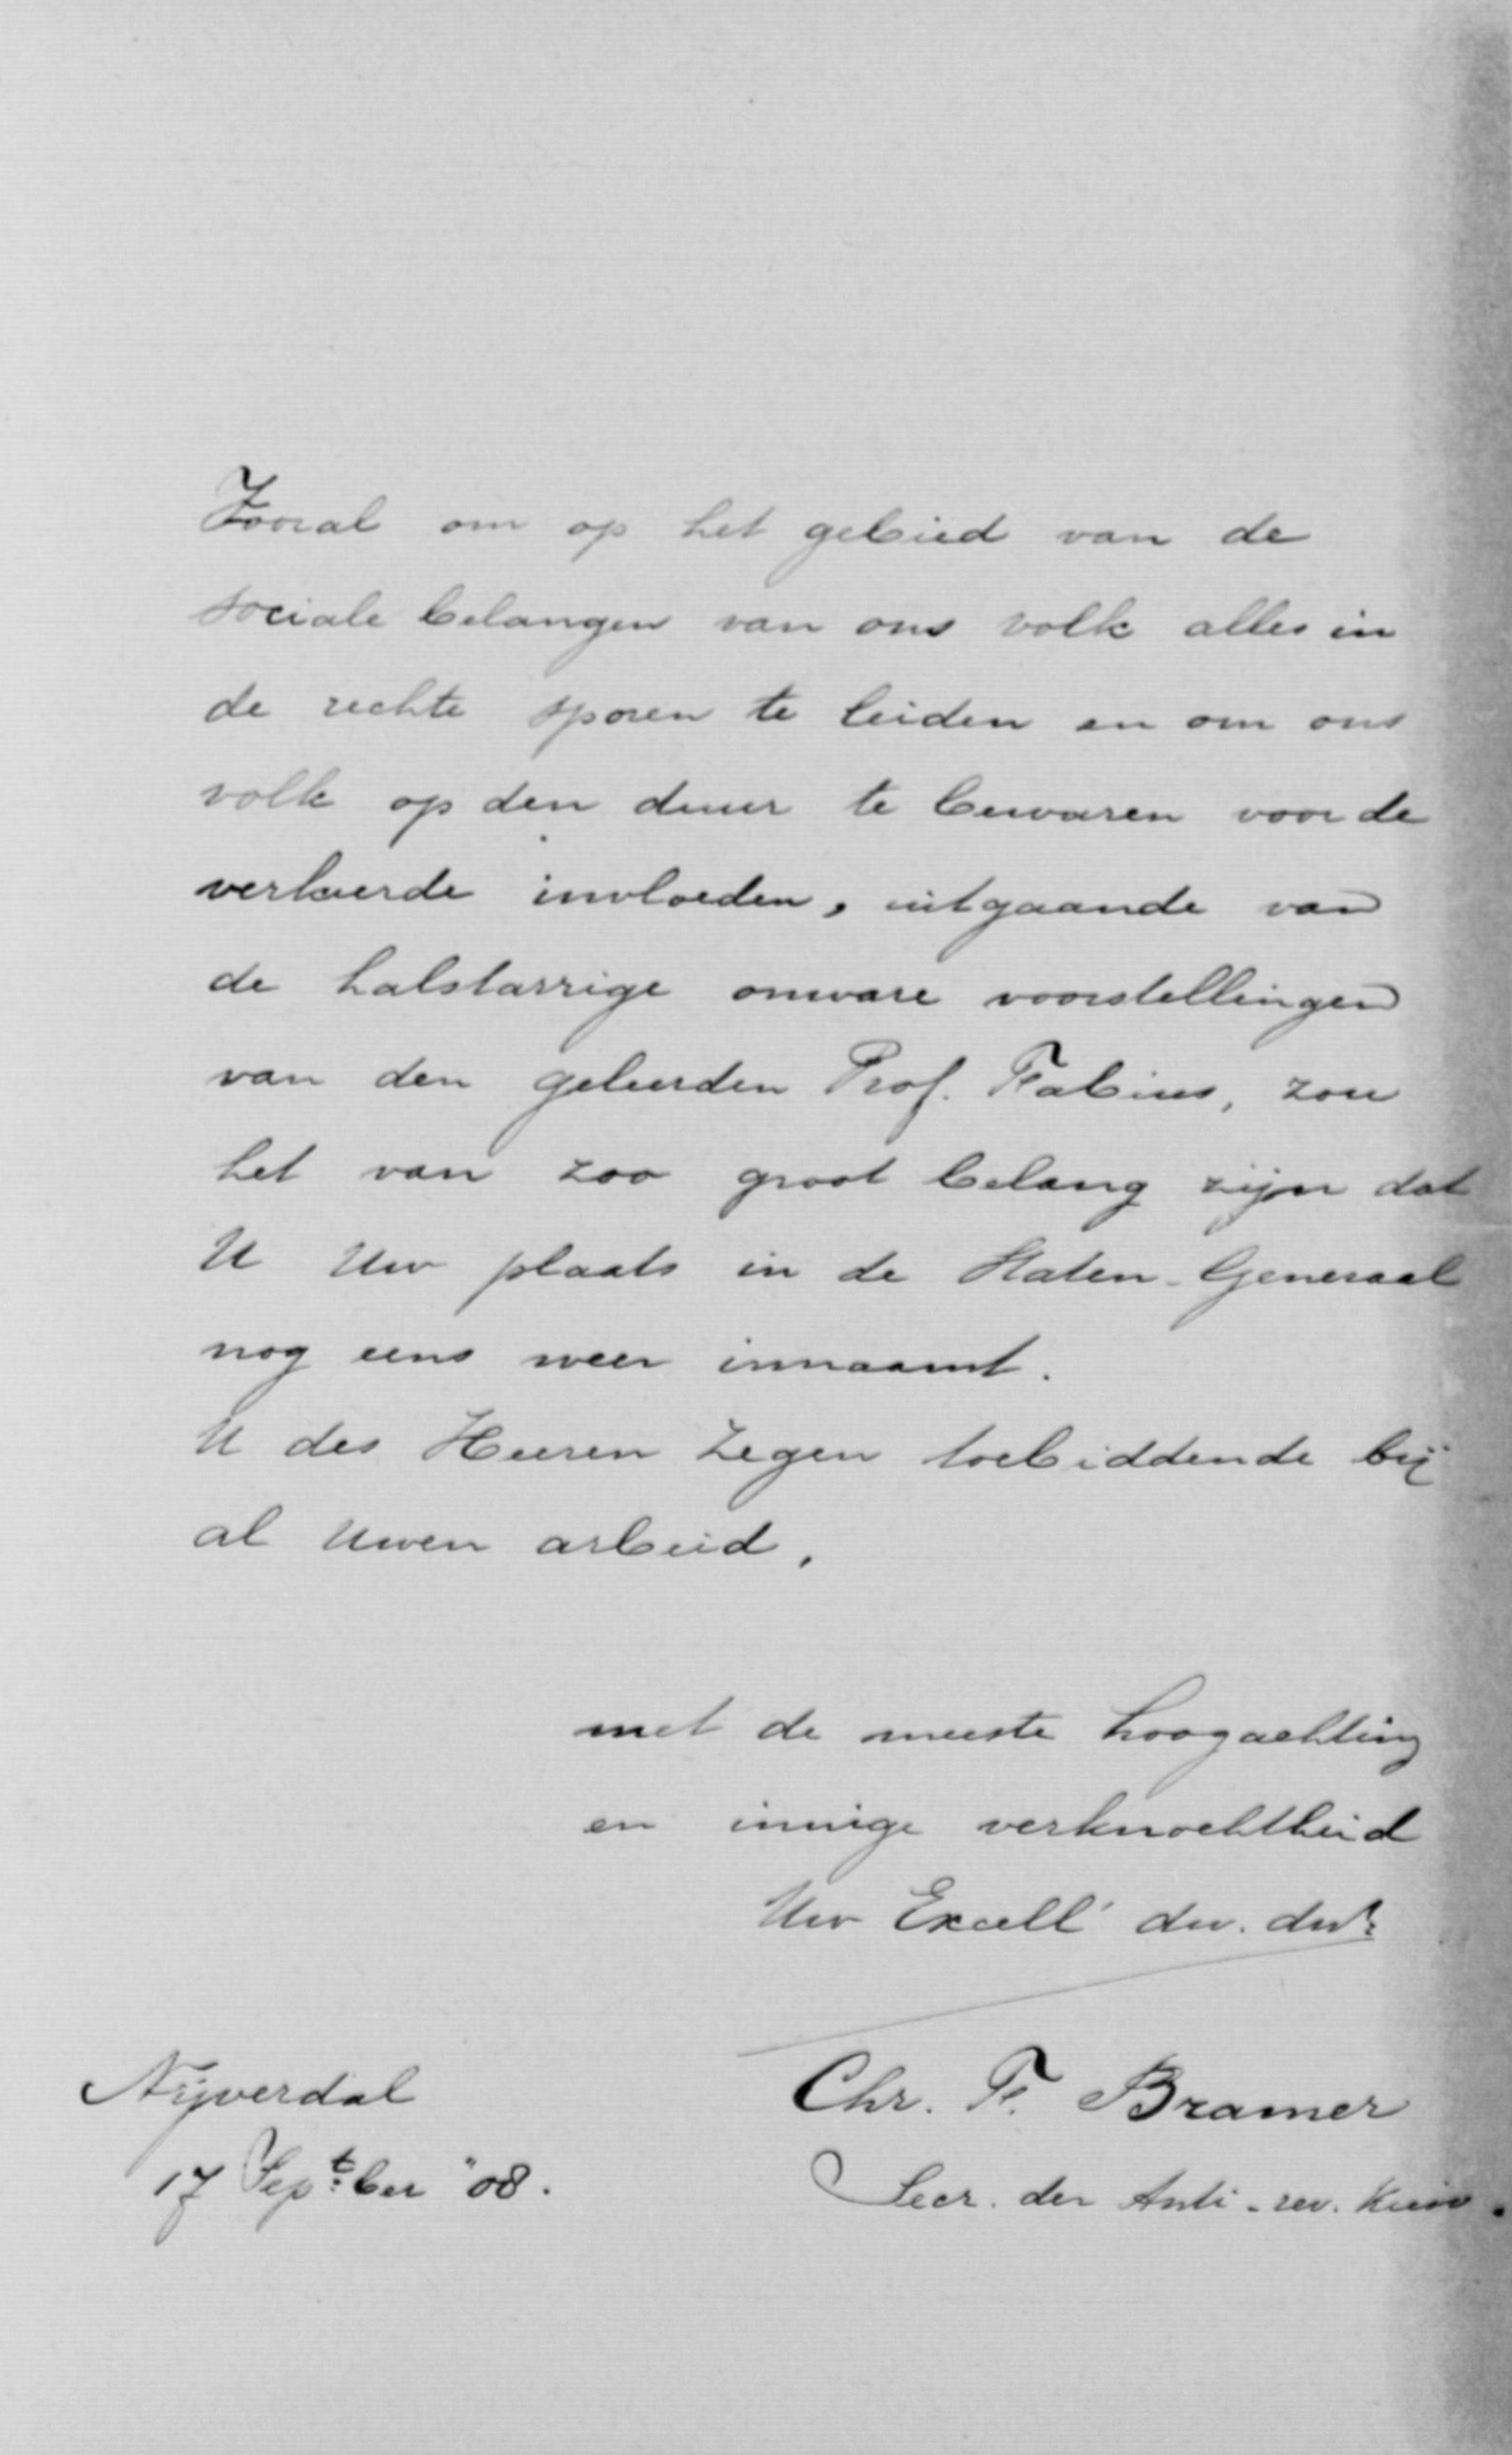 Vooral om op het gebied van de
sociale belangen van ons volk alles in
de rechte sporen te leiden en om ons
volk op den duur te bewaren voor de
verkeerde invloeden, uitgaande van
de halstarrige onware voorstellingen
van den geleerden Prof. Fabius, zou
het van zoo groot belang zijn dat
U Uw plaats in de Staten-Generaal
nog eens weer innaamt.
U des Heeren Zegen toebiddende bij
al Uwen arbeid,
met de meeste hoogachting
en innige verknochtheid
Uw Excell' dw. dnr.
Nijverdal
17 Septber "08.
Chr. F. Bramer
Secr. der Anti-rev. Kiesv.